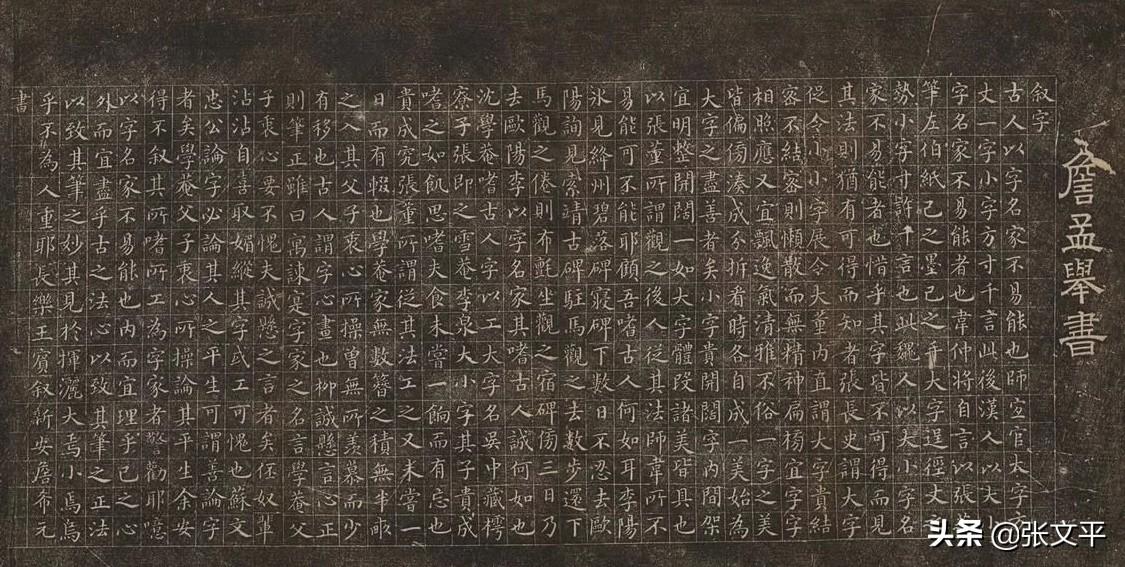 詹孟舉書
叙字
古人以字名家不易能也師宜官大字方
丈一字小字方寸千言此後漢人以大小
字名家不易能者也韋仲將自言以張芝
筆左伯紙己之墨己之手大字逞徑丈
勢小字寸許千言也此魏人以大小字名
家不易能者也惜乎其字皆不可得而見
其法則猶有可得而知者張長史謂大字
促令小小字展令大董内直謂大字貴結
密不結密則懶散而無精神扁榜宜字字
相照應又宜飄逸氣清雅不俗一字之美
皆偏傍湊成分拆看時各自成一美始為
大字之盡善者矣小字貴開闊字内間架
宜明整開闊一如大字體段諸美皆具也
以張董所謂觀之後人從其法師韋所不
易能可不能耶顧吾嗜古人何如耳李陽
氷見絳州碧落碑寢碑下數日不忍去歐
陽詢見索靖古碑駐馬觀之去數步還下
馬觀之倦則布氈坐觀之宿碑傍三日乃
去歐陽李以字名家其嗜古人誠何如也
沈學菴嗜古人字以工大字名吳中藏樗
寮子張即之雪菴李大小字其子貴成
嗜之如飢思嗜夫食未嘗一餉而有忘也
貴成究張董所謂從其法工之又未嘗一
日而有輟也學菴家無數簪之積無半畝
之入其父子衷心所操曾無所羨慕而少
有移也古人謂字心畫也柳誠懸言心正
則筆正雖曰寓諫寔字家之名言學菴父
子衷心要不愧夫誠懸之言者矣伾奴輩
沾沾自喜取媚縱其字或工可愧也蘇文
忠公論字必論其人之平生可謂善論字
者矣學菴父子衷心所操論其平生余安
得不叙其所嗜所工為字家者警勸耶噫
以字名家不易能也内而宜理乎己之心
外而宜盡乎古之法心以致其筆之正法
以致其筆之妙其見於揮灑大焉小焉烏
乎不為人重耶長樂王賓叙新安詹希元
書
头条 @张文平